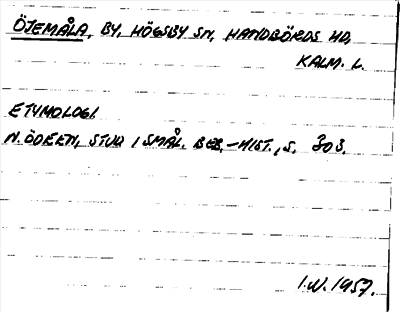 ÖJEMÅLA, BY, HÖGSBY SN, HANDBÖRDS HD,
KALM. L.
ETYMOLOGI.
N. ÖDEEN, STUD I SMÅL. BEB.-HIST., S. 303.
I.W. 1957.